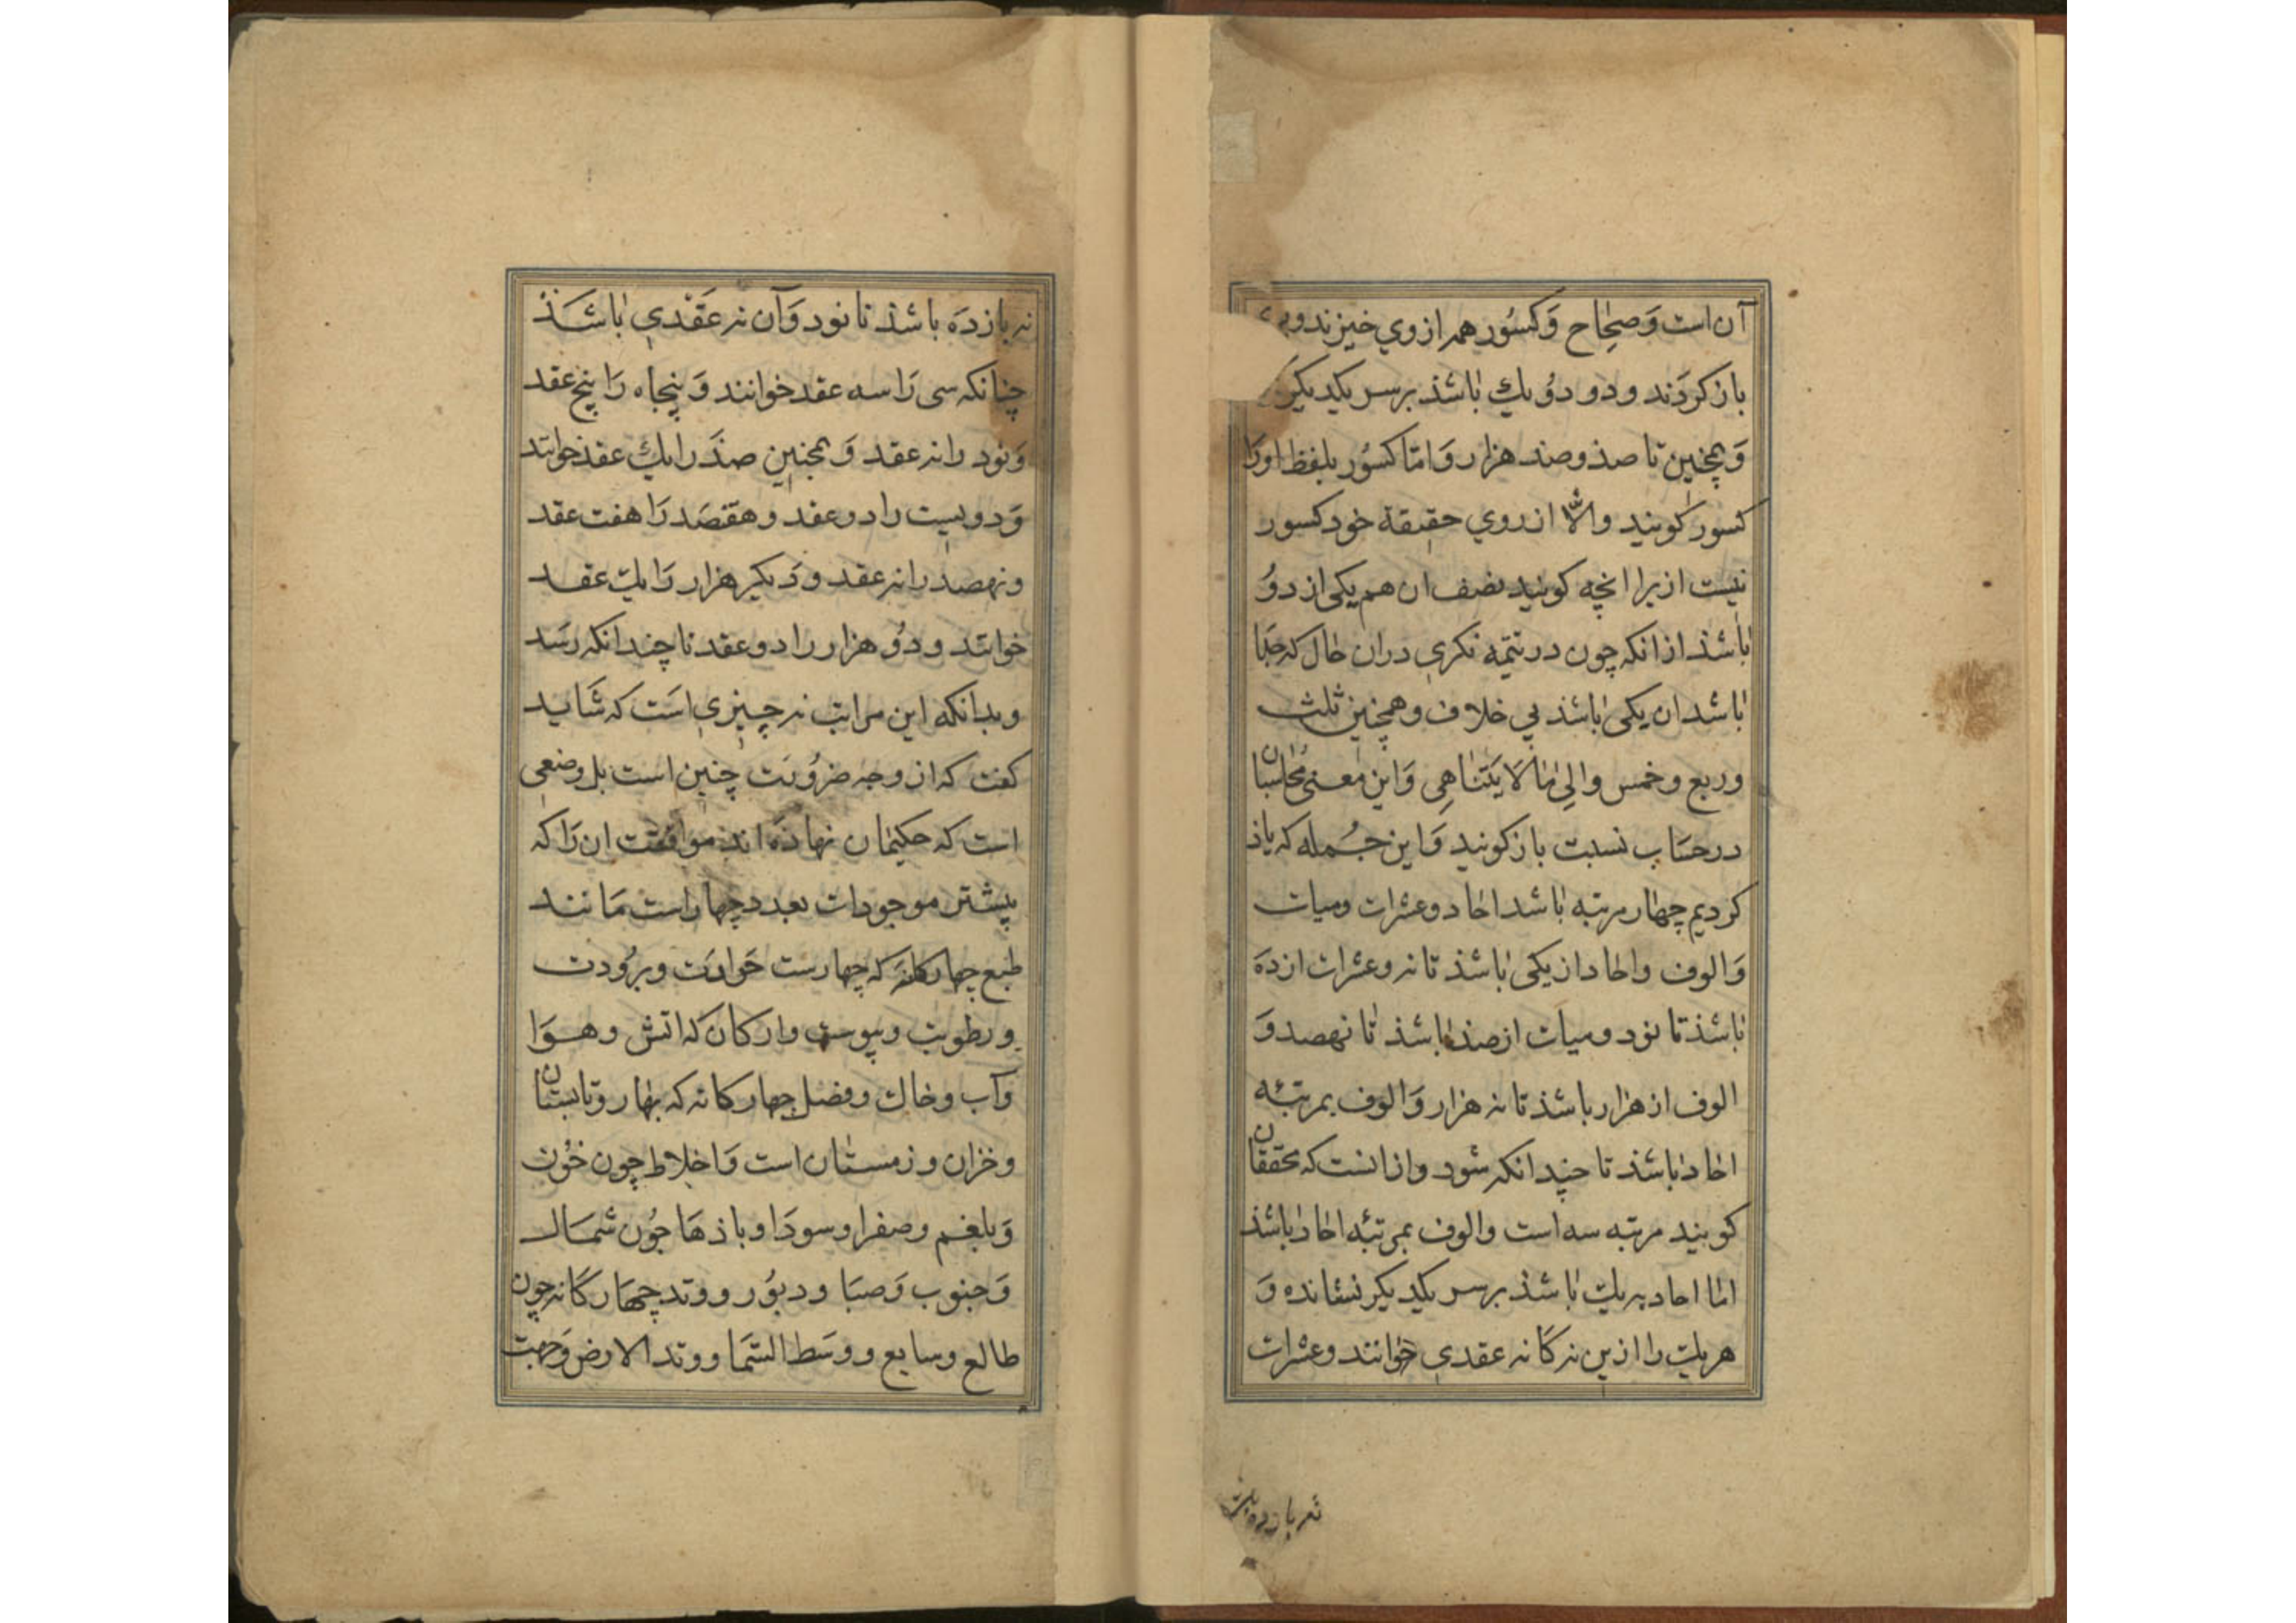 آن است وَصحِاح وَكسُور همه از وي خيزند و
باز كردَند و دو دوُ يك باشذ بر سر يكديكر
وَ همچنين تا صذ و صد هزار وَ امّا كسوُر بلفظ او رَا
كسور كويند والّا از روي حقيقة خود كسور
نيست از برا انچه كويند نصف ان هم يكى از دوُ
باشذ از انكه چون در نيمه نكرى در ان حال كه جدا
باشد ان يكى باشذ بي خلاف و همچنين ثلث
و ربع و خمس و الِى ما لَا يَتَناهِى وَ اين معنى مُحاسبان
در حسَاب نسبت باز كويند وَ اين جُمله كه ياذ
كرديم چهار مرتبه باشد احاد و عشرات و ميات
وَ الوف و احاد از يكى باشذ تا نه و عشرات از دَه
باشذ تا نود و ميات از صذ باشذ تا نهصد وَ
الوف از هزار باشذ تا نه هزار وَ الوف بمرتبهٔ
احاد باشذ تا چندانكه شود و از انست كه محققان
كويند مرتبه سه است و الوف بمرتبهٔ احاد باشذ
امّا احاد يه يك باشذ بر سر يكديكر نشانده وَ
هر يك را ازين نه كَانه عقدى خوانند و عشرات
نه بار ده باشذ
نه بار دَه باشذ تا نود وَ آن نه عَقْدى باشَذ
چنانكه سى رَا سه عقد خوانند وَ پنجاه رَا پنج عقد
وَ نود را نه عقد وَ همچنين صذَ را يك عقد خوانند
وَ دويست را دو عقد و هفتصَد رَا هفت عقد
و نهصد را نه عقد و دَيكر هزار رَا يك عقد
خوانند و دوُ هزار را دو عقد تا چندانكه رسَد
و بدانكه اين مراتب نه چيزى است كه شَايد
كفت كه از وجه ضروُرَت چنين است بل وضعى
است كه حكيمان نهاذه اند موافقت ان رَا كه
پيشتر موجودات بعدد چهار است مَانند
طبع چهاركانَه كه چهارست حَرارَت و برُودت
و رطوبت و يبوست و اركان كه اتش و هوَا
وَ آب و خاك و فصل چهاركانه كه بهار و تابستان
و خزان و زمستان است وَ اخلاط چون خوُن
وَ بلغم و صفرا و سودَا و باذهَا چُون شمَال
وَ جنوب وَ صبَا و دبوُر و وتد چهَاركَانه چون
طالع و سابع و وَسَط السّمَا و وتد الارض وَ جهت